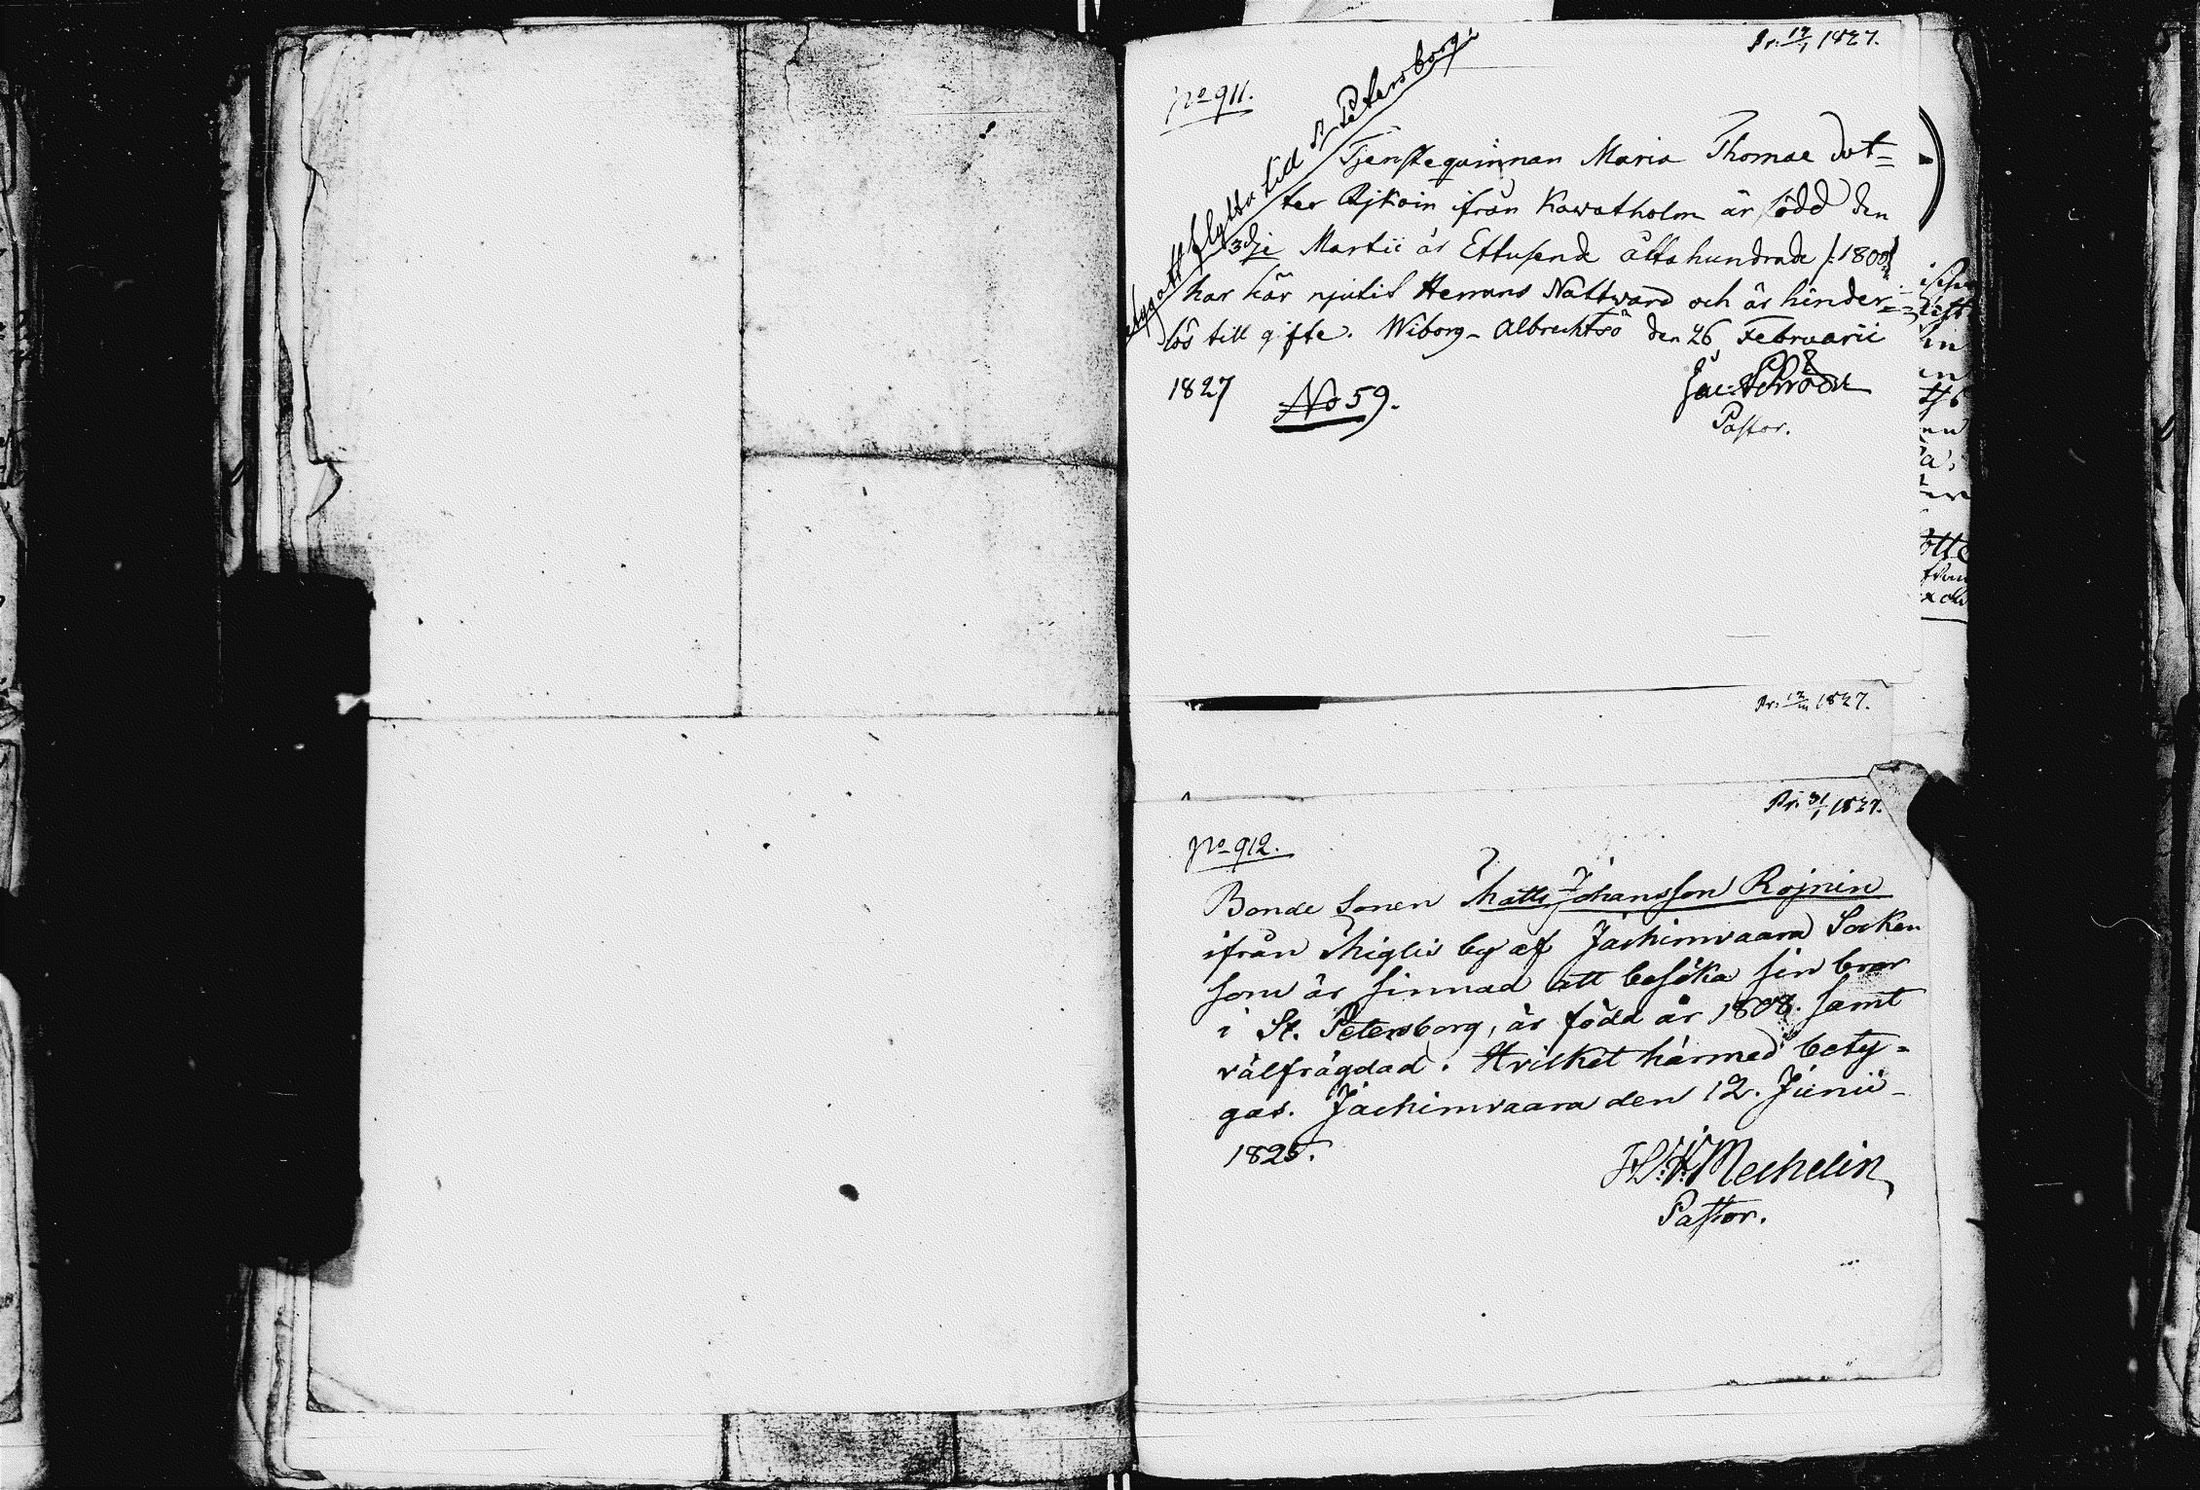 Pr. 12/1 1827.
No 911.
att flytta till St Petersborg
Tjenstequinnan Maria Thomae dot=
ter Ajkoin ifrån Kawatholm är född den
3dje Martii år Ettusende åttahundrade /:1800:/
har här njutit Herrans Nattward och är hinder=
lös till gifte. Wiborg-Albrechtsö den 26 Februarii
1827
No 59.
Jac: Schröder
Pastor.
1827.
Pr. 31/1 1827.
No 912.
Bonde Sonen Matts Johansson Rojnin
ifrån Miglis by af Jaschimvaara Socken
som är sinnad att besöka sin bror
i St. Petersborg, är född år 1808. samt
välfrägdad. Hvilket härmed bety=
gas. Jaschimvaara den 12. Junii
1825.
Mechelin
Pastor.